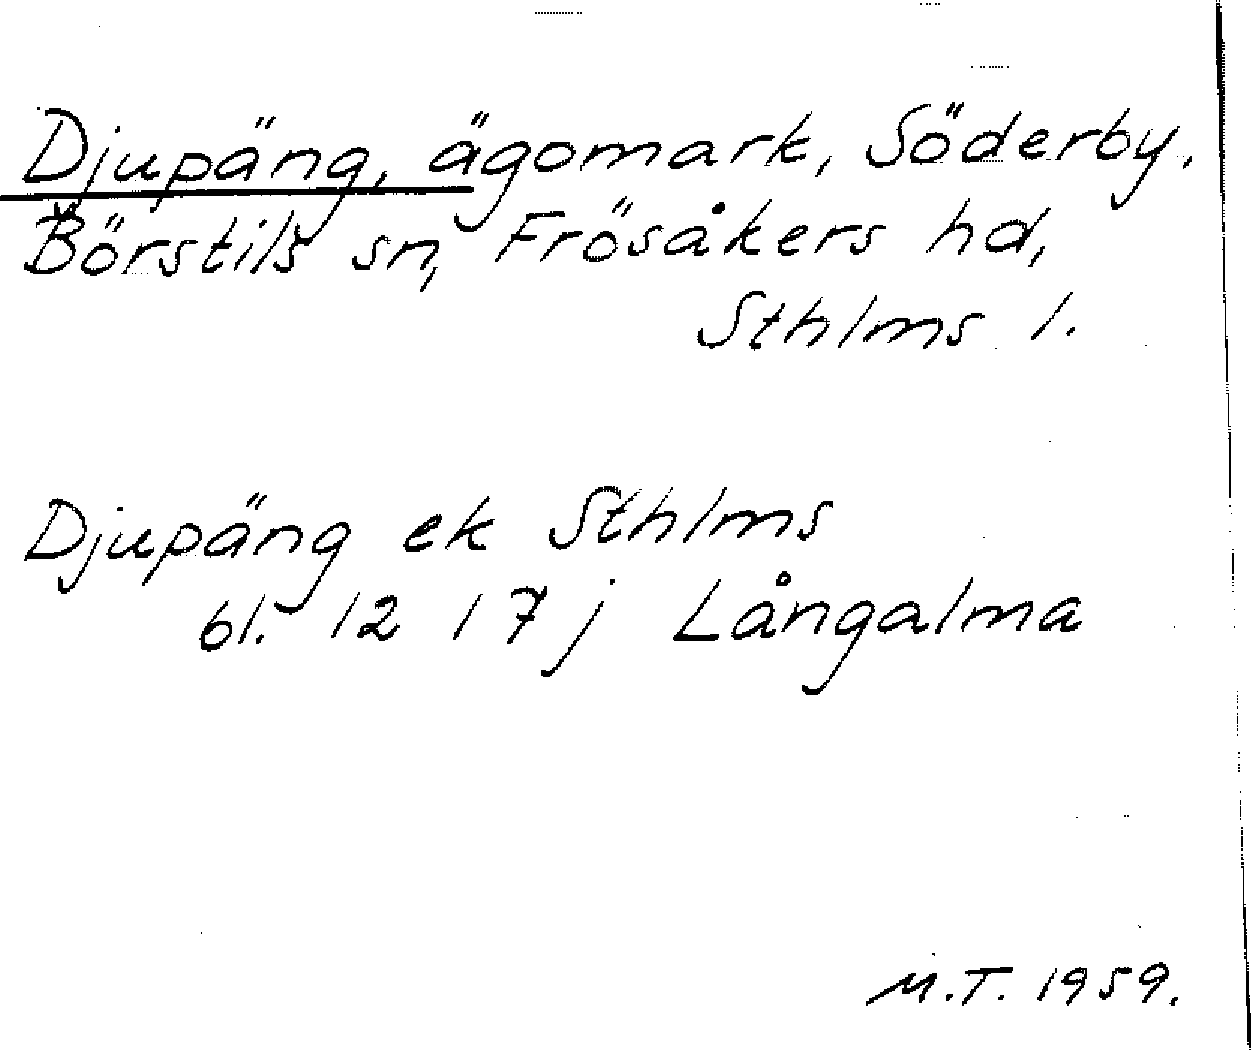 Djupäng, ägomark, Söderby,
Börstils sn, Frösåkers hd,
Sthlms l.
Djupäng ek Sthlms
bl. 12 I 7 j Långalma
M.T. 1959.